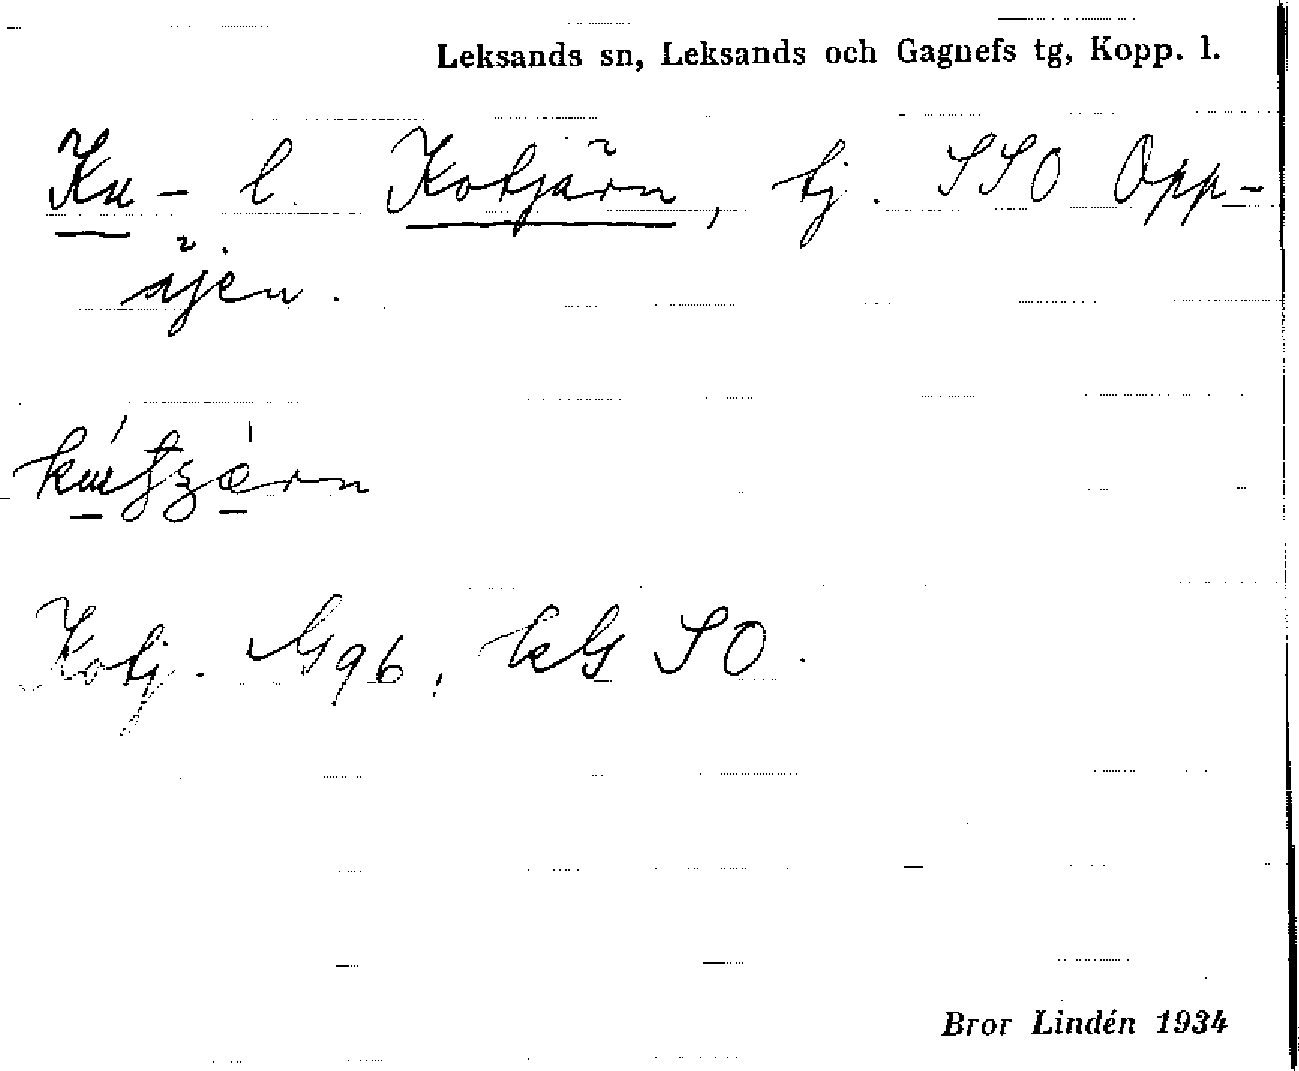 Leksands sn, Leksands och Gagnefs tg, Kopp. l.
Ku- l. Kotjärn, tj. SSO Opp-
äjen.
Kotj. G96, kG SO.
Bror Lindén 1934